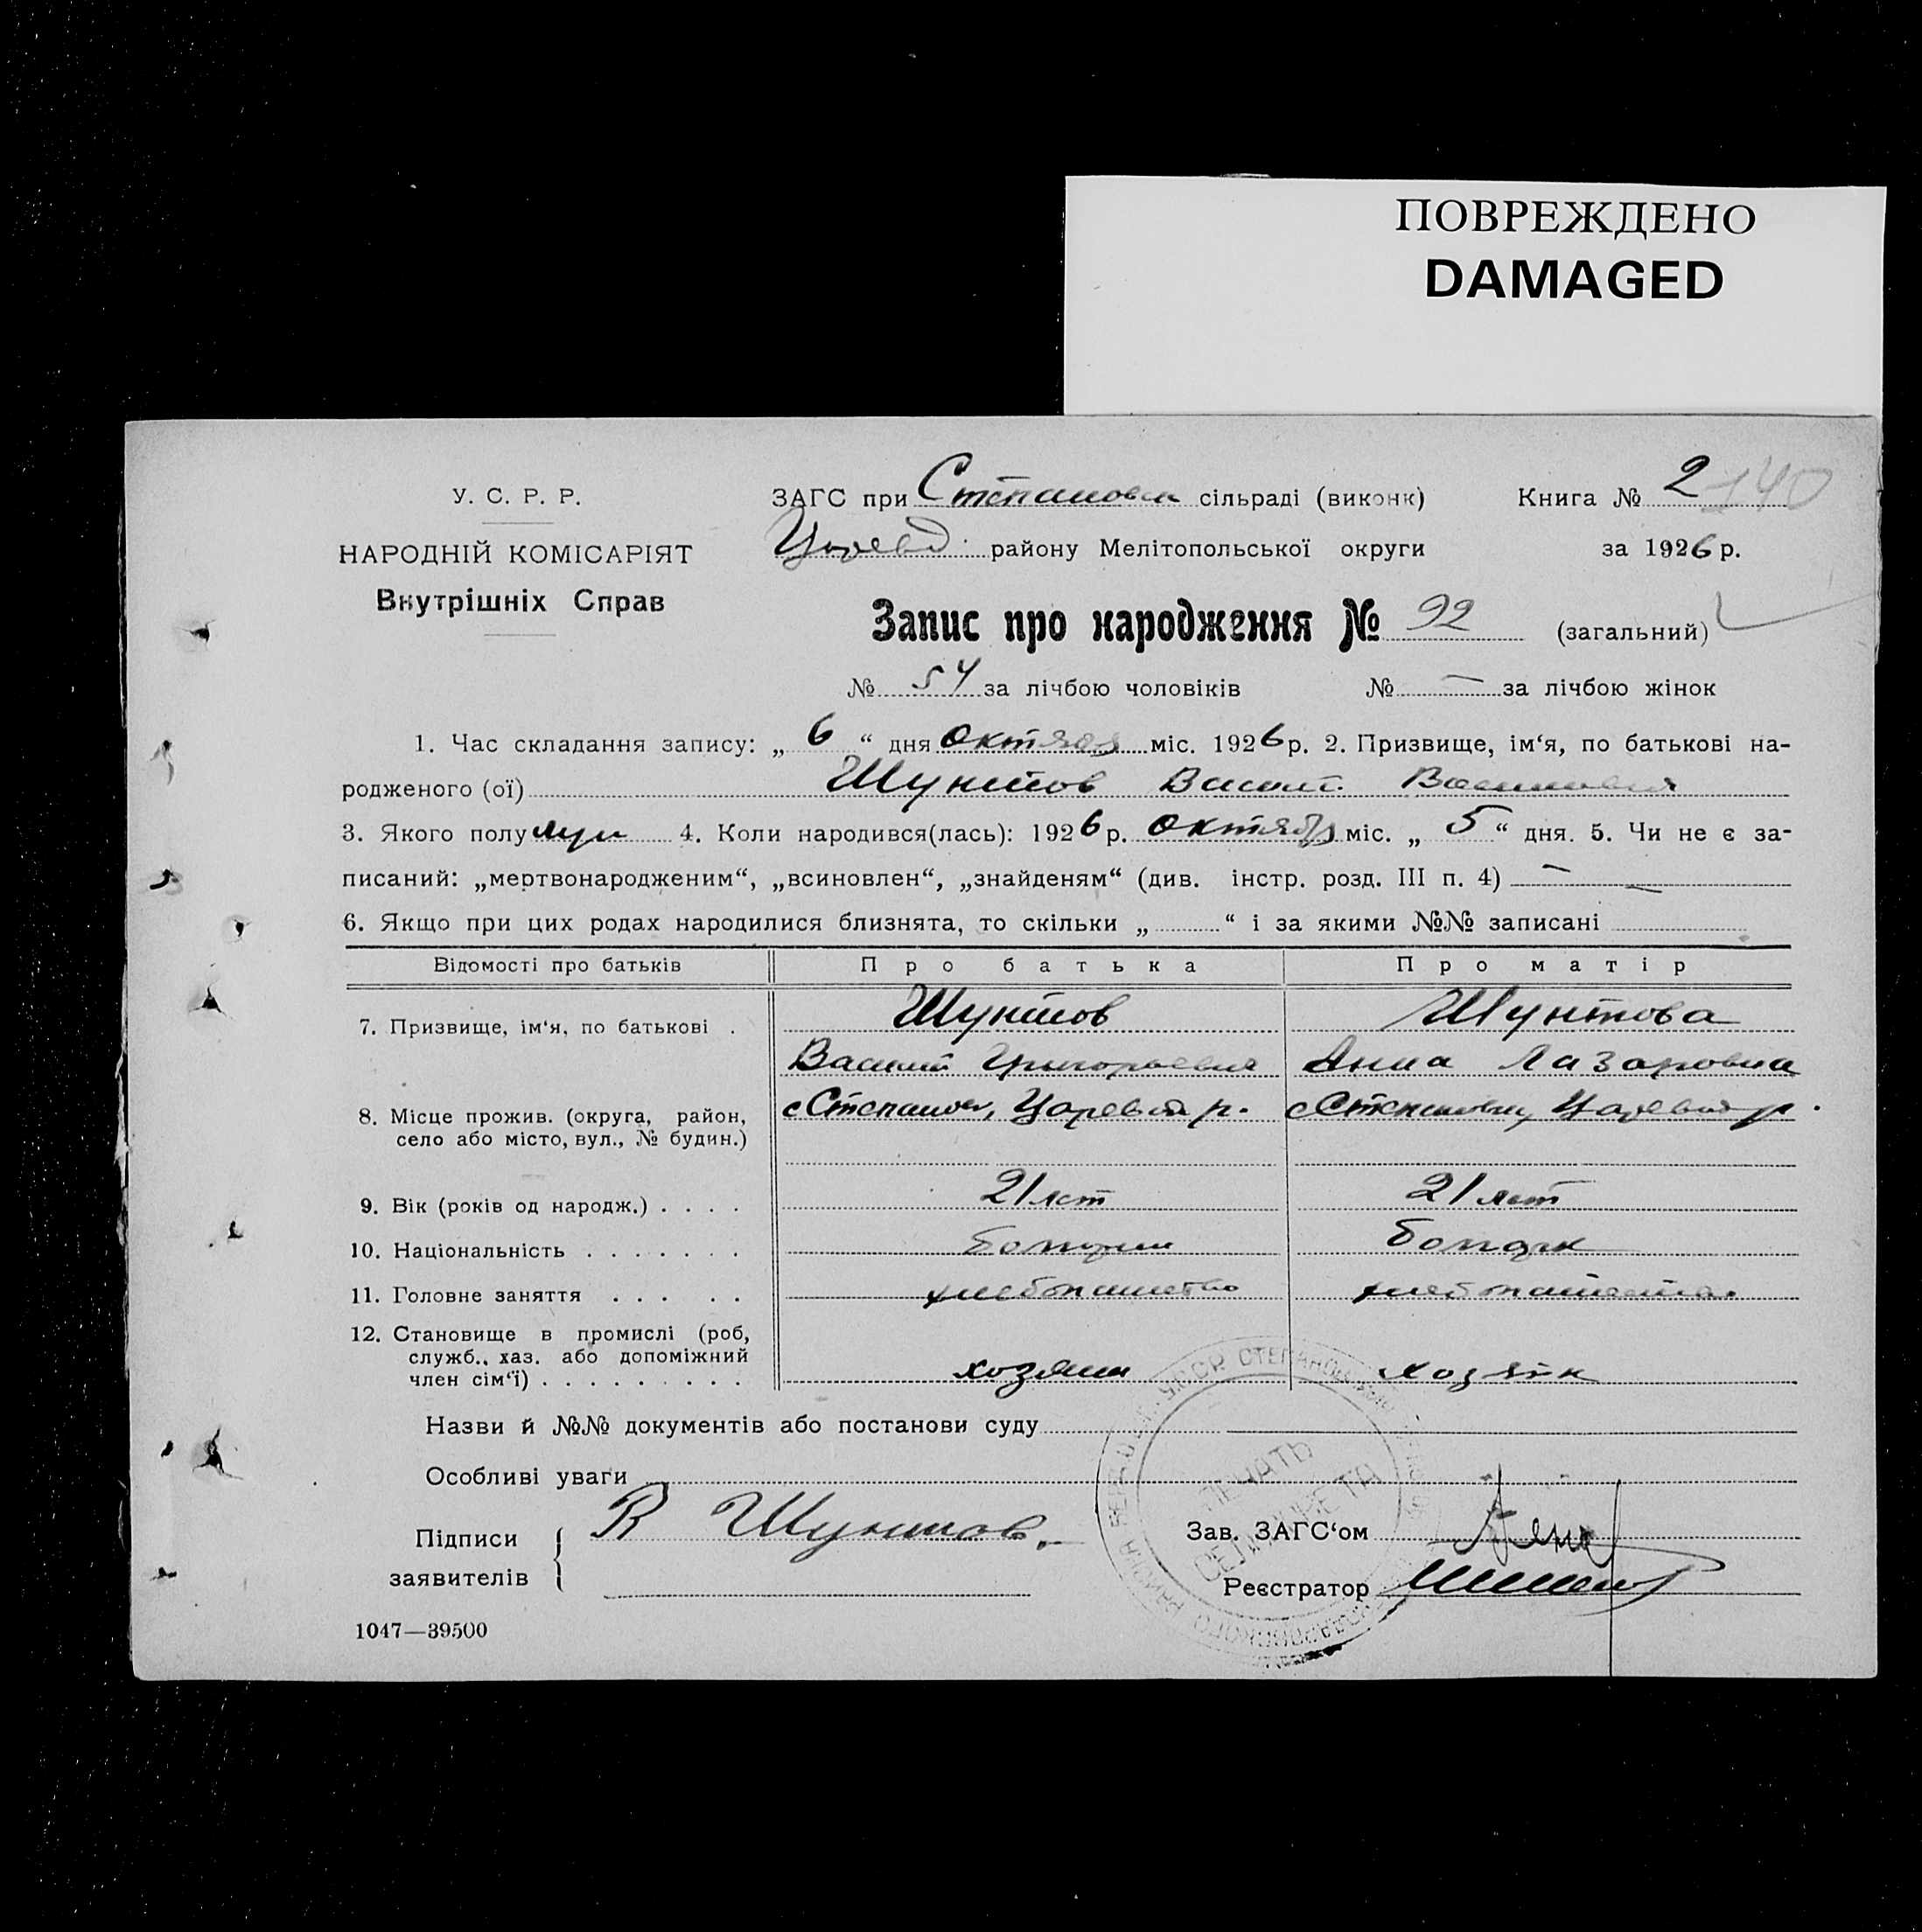 ПОВРЕЖДЕНО
DAMAGED
У. С. Р. Р.
НАРОДНІЙ КОМІСАРІЯТ
Внутрішніх Справ
ЗАГС при Степановск сільраді (виконк) Книга № 2 140
Царевод. району Мелітопольської округи за 1926 р.
Запис про народження № 92 (загальний)
№ 54 за лічбою чоловіків № — за лічбою жінок
1. Час складання запису: „ 6 “ дня октября міс. 1926 р. 2. Призвище, ім‘я, по батькові на-
родженого (ої) Шунтов Васил. Васильевич
3. Якого полу муж 4. Коли народився(лась): 1926 р. октября міс. „ 5 “ дня. 5. Чи не є за-
писаний: „мертвонародженим“, „всиновлен“, „знайденям“ (див. інстр. розд. III п. 4) — —
6. Якщо при цих родах народилися близнята, то скільки „ “ і за якими №№ записані
Відомості про батьків Про батька Про матір
7. Призвище, ім‘я, по батькові . Шунтов Шунтова
Василий Григорьевич Анна Лазаровна
8. Місце прожив. (округа, район, с Степановк, Царевод р. с Степановки, Царевод р.
село або місто, вул., № будин.)
9. Вік (років од народж.) . . . . 21 лет 21 лет
10. Національність . . . . . . .
11. Головне заняття . . . . . хлебопашество хлебопашество
12. Становище в промислі (роб,
служб., хаз. або допоміжний
член сім‘ї) . . . . . . . . . хозяин хозяйк
Назви й №№ документів або постанови суду
Особливі уваги
Підписи заявителів В Шунтов.
Зав. ЗАГС‘ом
Реєстратор
ПЕЧАТЬ
СЕЛЬСОВЕТА
1047—39500